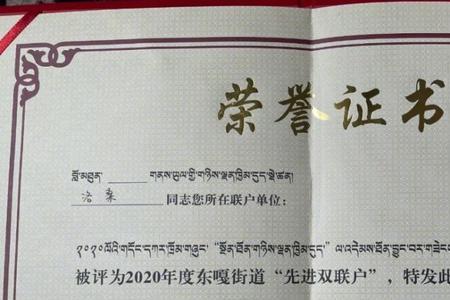 荣誉证书
བློ་མཐུན་ ______ གནས་ཡུལ་གྱི་གཉིས་ལྡན་ཁྱིམ་དུད་སྡེ་ཚན།
洛桑 同志您所在联户单位：
༢༠༢༠ལོའི་གདོང་དཀར་ཁྲོམ་གཞུང་ "སྔོན་ཐོན་གཉིས་ལྡན་ཁྱིམ་དུད་" ལ་འདེམས་ཐོན་བྱུང་བར་
被评为2020年度东嘎街道“先进双联户”，特发此